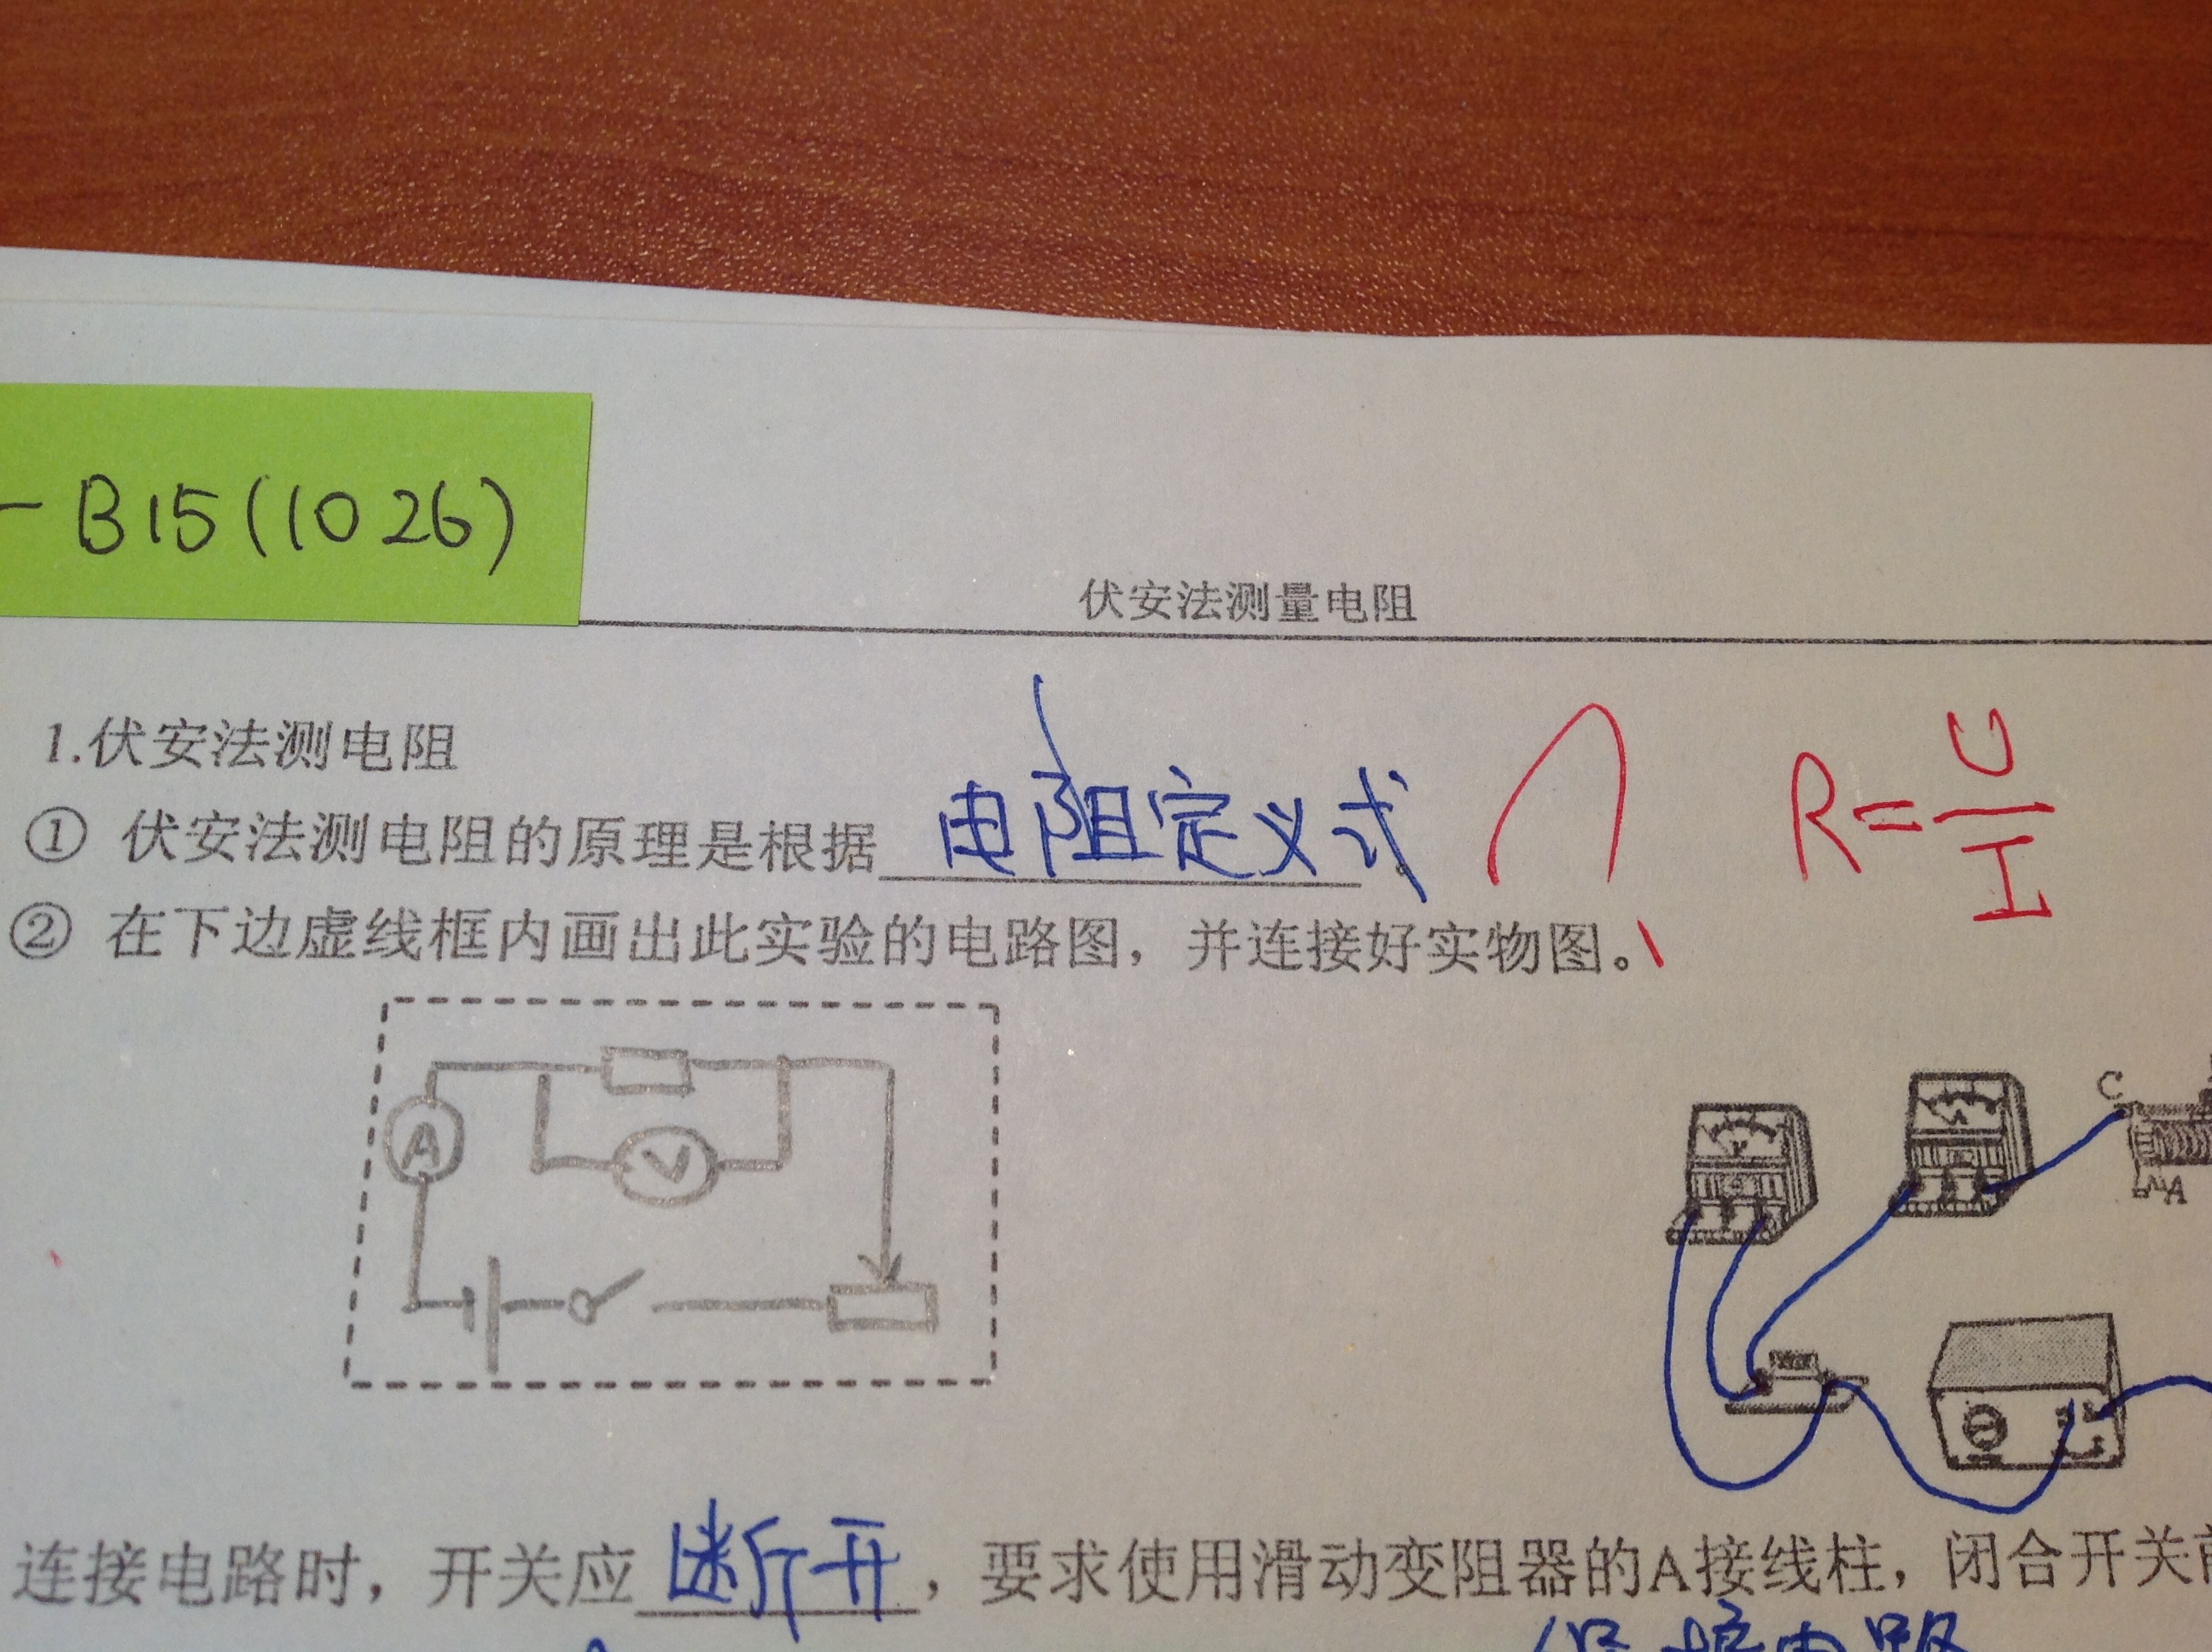 B15(1026)
伏安法测量电阻
1.伏安法测电阻
① 伏安法测电阻的原理是根据 电阻定义式 。 R=U/I
② 在下边虚线框内画出此实验的电路图，并连接好实物图。
A
V
V
A
C
A
连接电路时，开关应断开，要求使用滑动变阻器的A接线柱，闭合开关